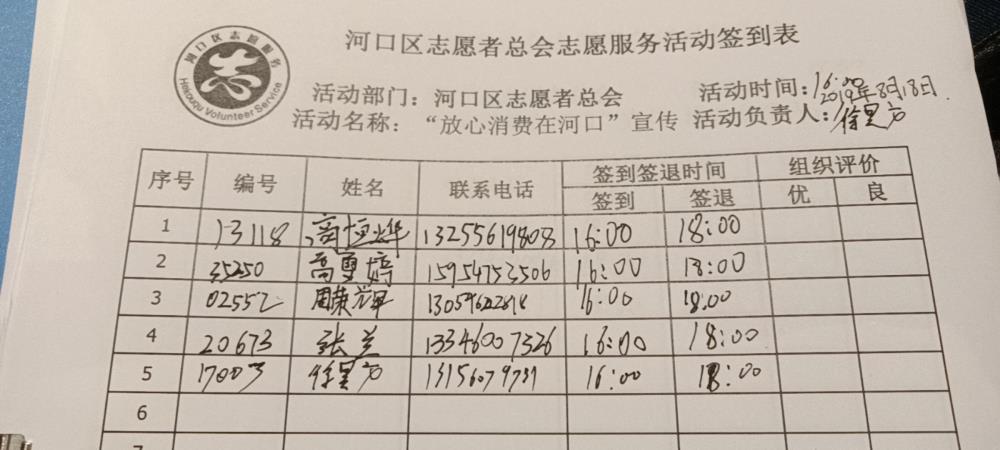 河口区志愿者总会志愿服务活动签到表
河口区志愿服务
Hekouqu Volunteer Service
活动部门：河口区志愿者总会 活动时间：16:00 2019年8月18日
活动名称：“放心消费在河口”宣传 活动负责人：
序号 编号 姓名 联系电话 签到签退时间 组织评价
签到 签退 优 良
1 13118 高恒烨 13255619808 16:00 18:00
2 35250 高夏嫣 15954753506 16:00 18:00
3 02552 周荣辉 16:00 18:00
4 20673 张兰 13346007326 16:00 18:00
5 17003 16:00 18:00
6